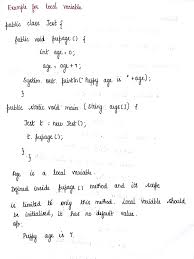 Example for local variable
public class Test {
public void pupage () {
int age = 0;
age = age + 7;
System. out. println ("Puppy age is " + age);
}
public static void main (String args[]) {
Test t = new Test ();
t. pupage ();
}
}
Age is a local variable.
Defined inside pupage () method and its scope
is limited to only this method. Local variable should
be initialized, it has no default value.
o/p:
Puppy age is 7.